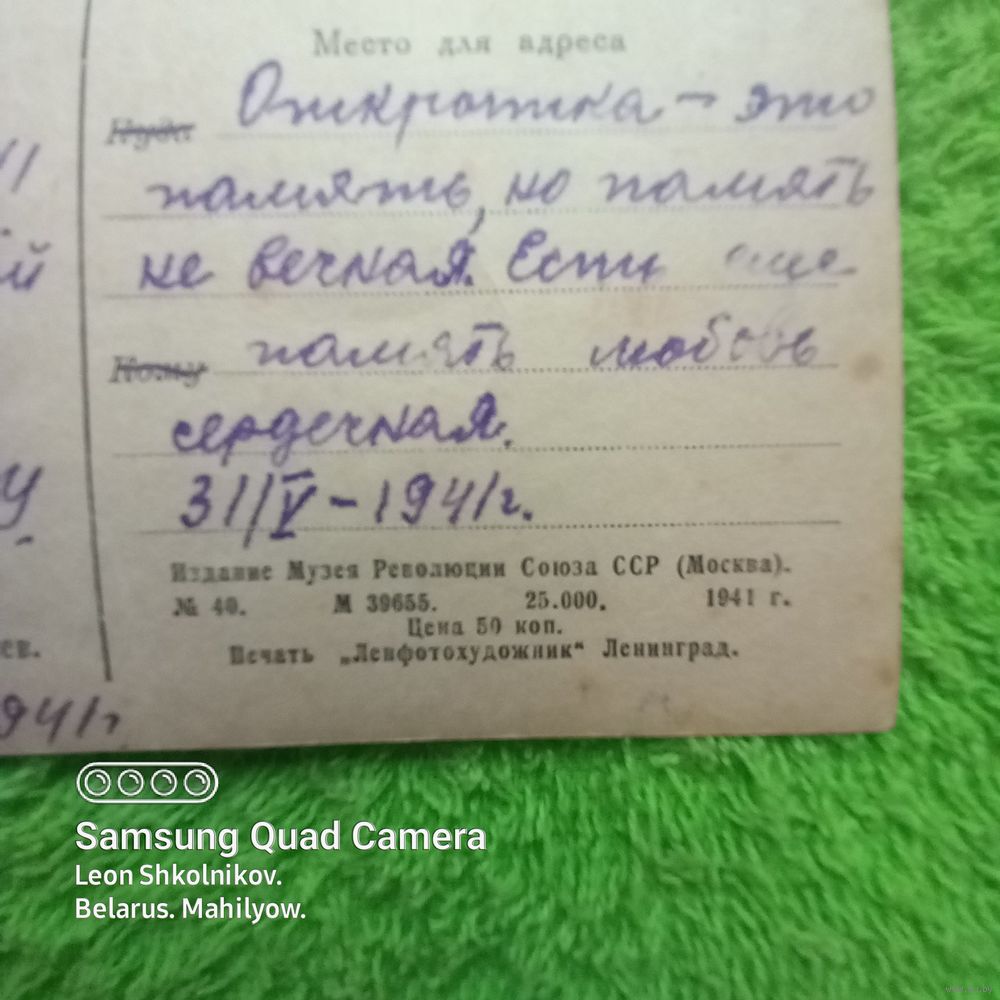 Место для адреса
Куда Открытка – это
память, но память
не вечная. Есть еще
Кому память любовь
сердечная.
31/V – 1941г.
Издание Музея Революции Союза ССР (Москва).
№ 40. М 39655. 25.000. 1941 г.
Цена 50 коп.
Печать „Ленфотохудожник“ Ленинград.
й
у
ев.
941г
Samsung Quad Camera
Leon Shkolnikov.
Belarus. Mahilyow.